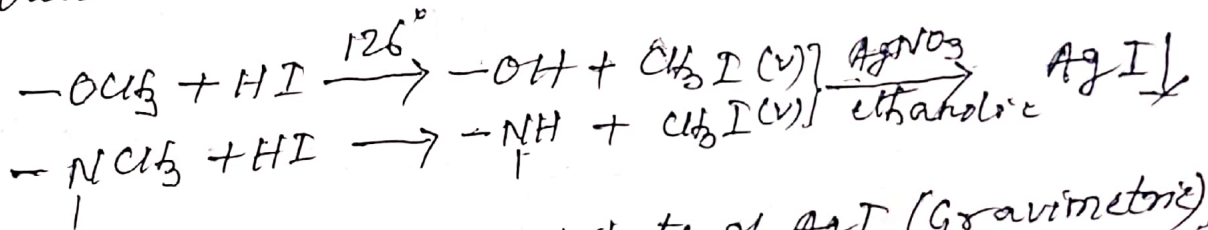 -OCH3 + HI —126°→ -OH + CH3I (v) } —AgNO3 ethanolic→ AgI↓
-NCH3 + HI ⟶ -NH + CH3I (v)
of AgI (Gravimetric)